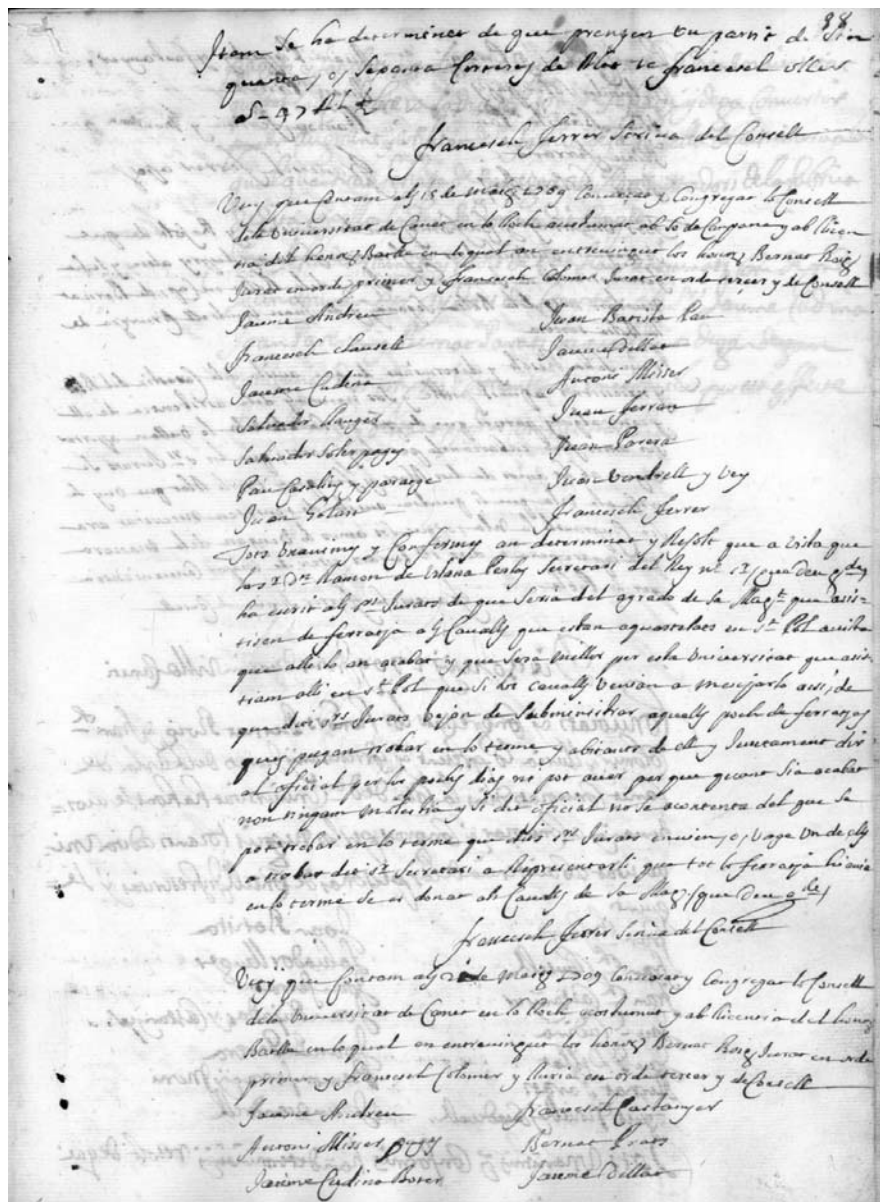 98
Item se ha determinat de que prengen un partit de sin
quanta, o, sexanta de Blat de francesch
francesch ferrer scriva del Consell
Vuy que Contam als 15 de Maig 1709 Convocat y Congregat lo Consell
dela Universitat de Canet en lo lloch acustumat ab so de Campana y ab llicen
tia del honor Batlle en loqual an entrevingut los honors Bernat Roig
Jurat en orde primer y Francesch Colomer Jurat en orde tercer y de Consell
Jaume Andreu Juan Batista Pau
francesch Clausell Jaume Dillat
Jaume Cudina Antoni Misser
Salvador Llauger Juan ferran
Salvador Soler pages Juan Parera
Pau Caselles y Juan Vendrell y Vey
Juan Golart Francesch ferrer
Tots Unanimes y Conformes an determinat y Resolt que a vista que
lo Sr Dn Ramon de Vilana Perlas Secretari del Rey nr Sr (que Deu gde)
ha escrit als Srs Jurats de que seria del agrado de sa Magt que asis-
tisen de ferratja als Cavalls que estan aquartelats en St Pol a vista
que alli lo an acabat y que sera millor per esta Universitat que asis-
tiam alli en St Pol que si dits cavalls venian a menjarlo assi, de
que dits Srs Jurats vejan de subministrar aquells poch de ferratjas
ques pugan trobar en lo terme y abitants de ell y Juntament dir
al official per los pochs dias ni pot aver per que quant sia acabat
non tingam molestia y si dit official no se acontenta del que se
pot trobar en lo terme que dits Srs Jurats envien, o, vage Un de ells
a trobar dit Sr Secretari a Representarli que tot lo ferratja hi avia
en lo terme se es donat als Cavalls de sa Magt (que Deu gde)
francesch ferrer scriva del Consell
Vuy que Contam als de Maig 1709 Convocat y Congregat lo Consell
dela Universitat de Canet en lo lloch acostumat y ab llicentia del honor
Batlle en loqual an entrevingut los honors Bernat Roig Jurat en orde
primer y francesch Colomer y Lluria en orde tercer y de Consell
Jaume Andreu francesch Castanyer
Antoni Misser Bernat Prats
Jaume Cudina Boter Jaume Dillat